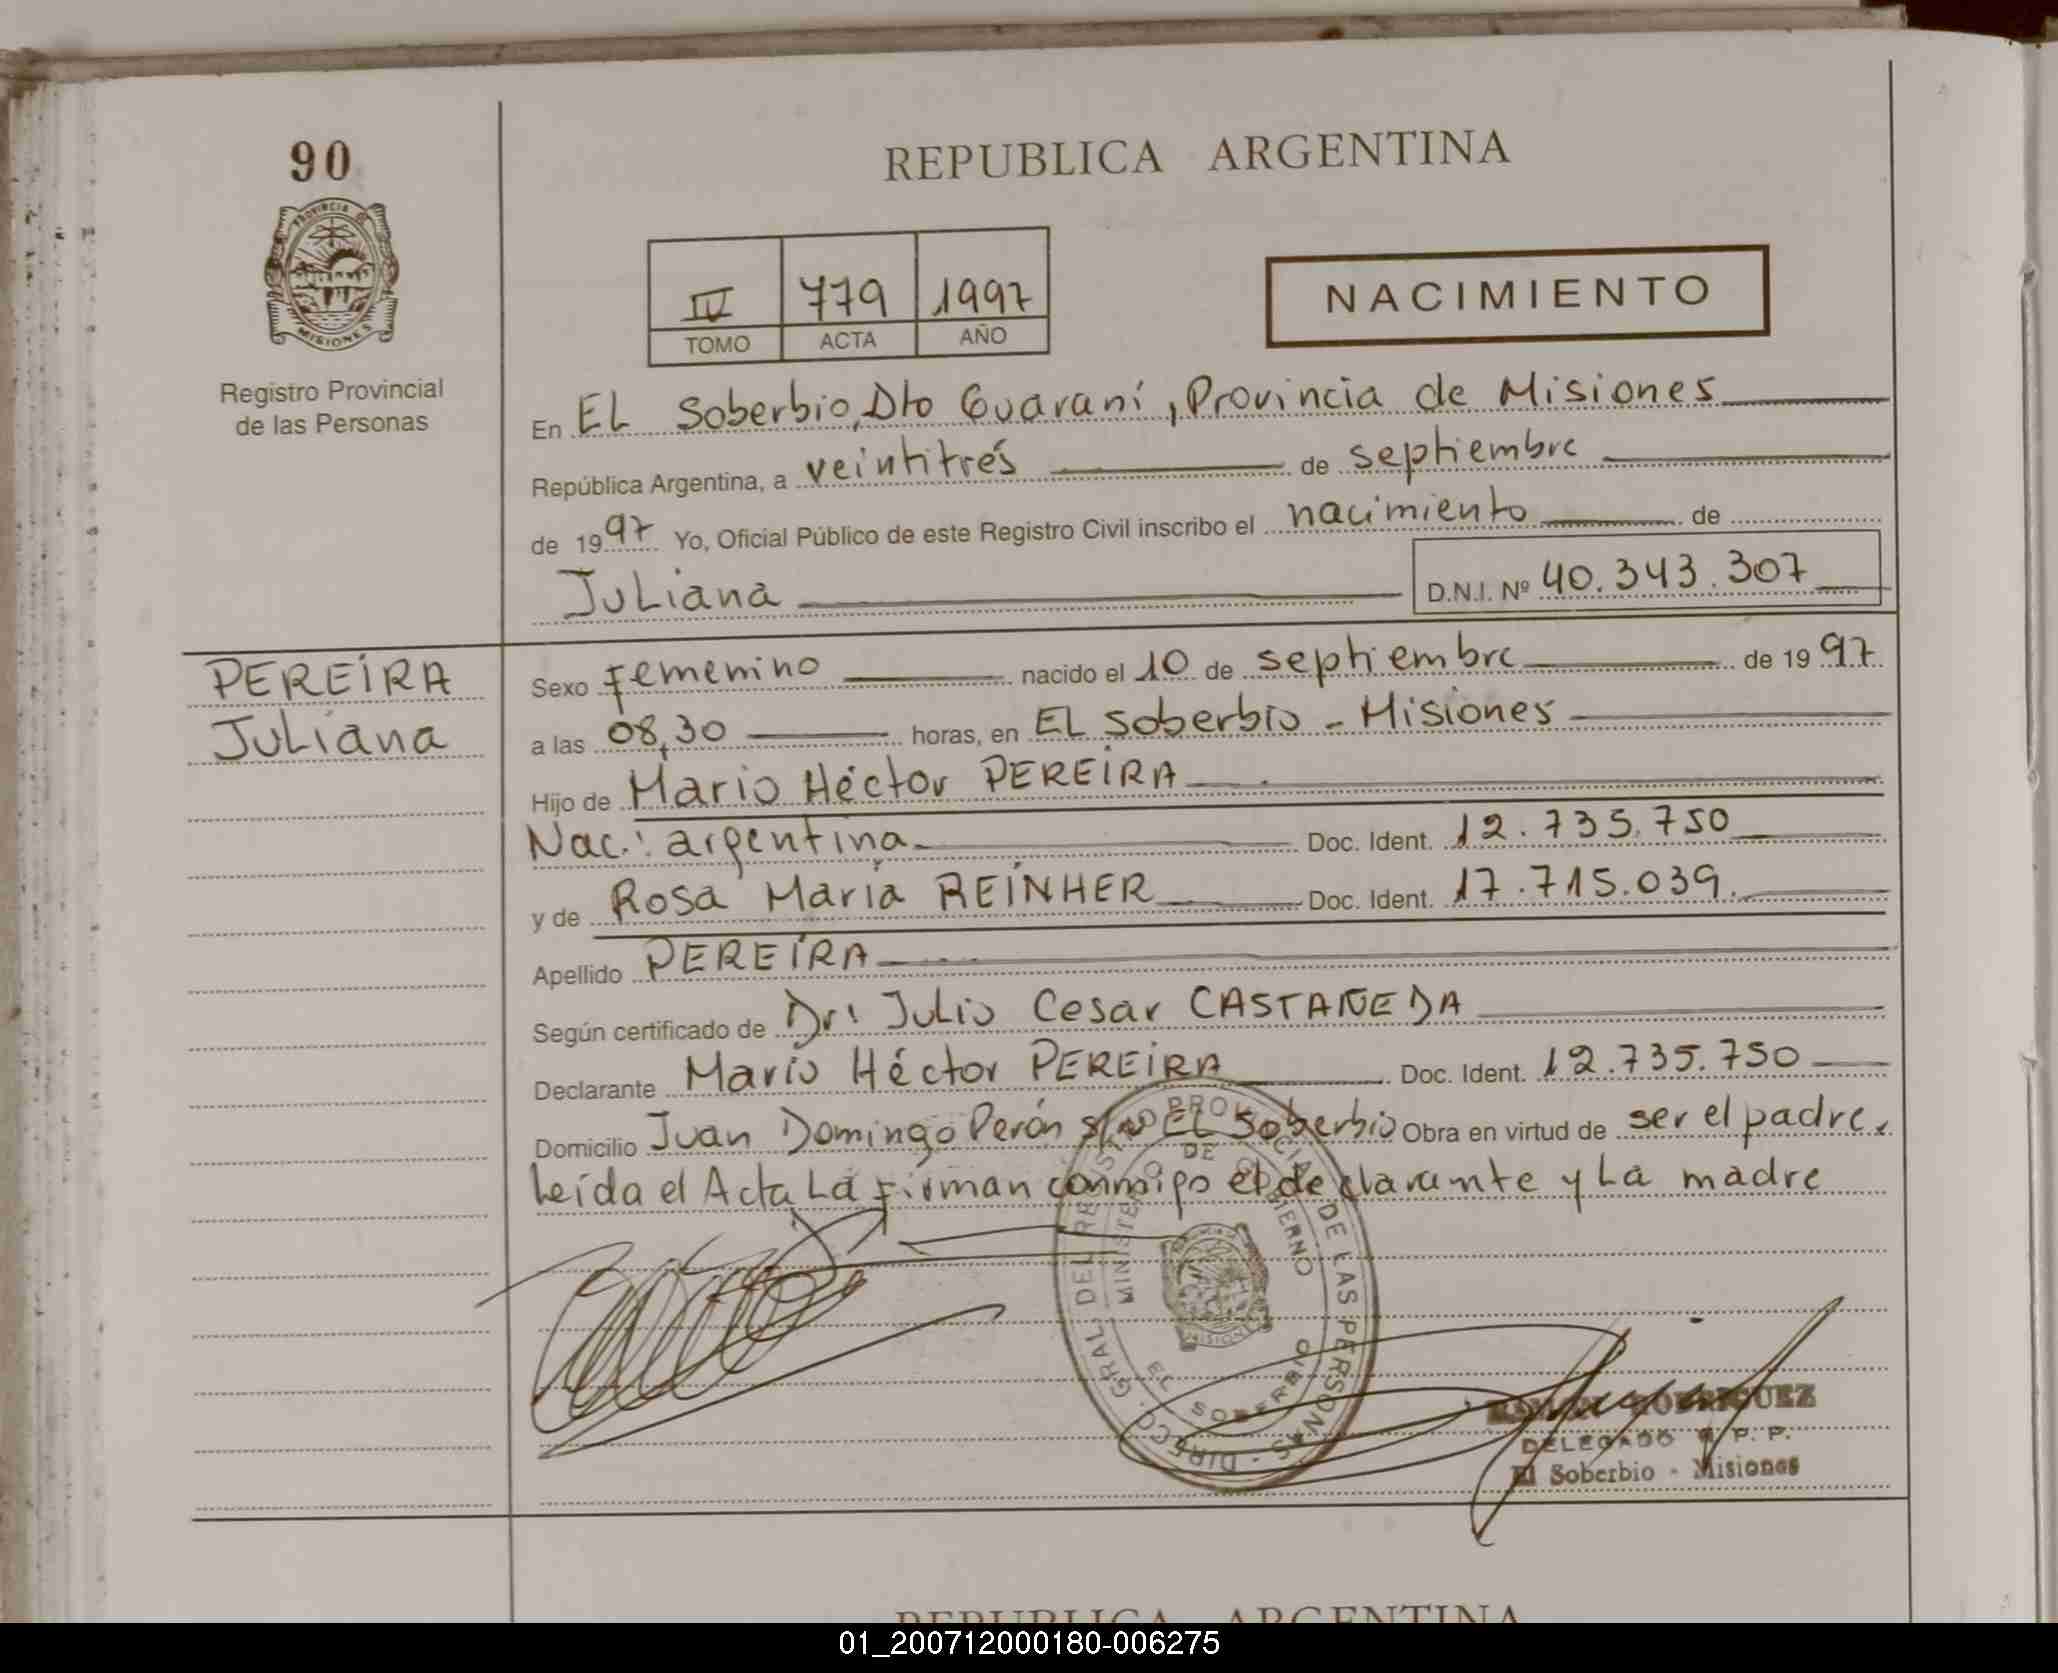 90
PROVINCIA DE
MISIONES
Registro Provincial
de las Personas
REPUBLICA ARGENTINA
IV 779 1997
TOMO ACTA AÑO
NACIMIENTO
En EL Soberbio, Dto Guaraní, Provincia de Misiones
República Argentina, a veintitrés de septiembre
de 1997 Yo, Oficial Público de este Registro Civil inscribo el nacimiento de
Juliana D.N.I. Nº 40.343.307
PEREIRA
Juliana
Sexo femenino nacido el 10 de septiembre de 1997
a las 08,30 horas, en EL Soberbio - Misiones
Hijo de Mario Héctor PEREIRA
Nac.: argentina Doc. Ident. 12.735.750
y de Rosa María REINHER Doc. Ident. 17.715.039.
Apellido PEREIRA
Según certificado de Dr: Julio Cesar CASTAÑEDA
Declarante Mario Héctor PEREIRA Doc. Ident. 12.735.750
Domicilio Juan Domingo Perón s/Nº EL Soberbio Obra en virtud de ser el padre,
Leída el Acta La firman conmigo el declarante y La madre
DIRECC. GRAL. DEL REGISTRO PROVINCIAL DE LAS PERSONAS
MINISTERIO DE GOBIERNO
EL SOBERBIO
MISIONES
RAMON RODRIGUEZ
DELEGADO R. P. P.
El Soberbio - Misiones
REPUBLICA ARGENTINA
01_200712000180-006275